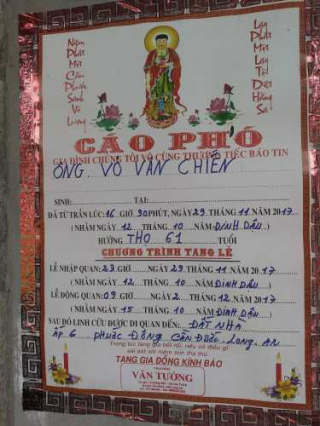 Niệm Phật Một Câu Phước Sanh Vô Lượng
Lạy Phật Một Lạy Tội Diệt Hằng Sa
CÁO PHÓ
GIA ĐÌNH CHÚNG TÔI VÔ CÙNG THƯƠNG TIẾC BÁO TIN
ÔNG. VÕ VĂN CHIẾN
SINH: TẠI:
ĐÃ TỪ TRẦN LÚC: 16 GIỜ 30 PHÚT, NGÀY 29 THÁNG 11 NĂM 2017
(NHẰM NGÀY 12 THÁNG 10 NĂM ĐINH DẬU)
HƯỞNG THỌ 61 TUỔI
CHƯƠNG TRÌNH TANG LỄ
LỄ NHẬP QUAN: 23 GIỜ NGÀY 29 THÁNG 11 NĂM 2017
(NHẰM NGÀY 12 THÁNG 10 NĂM ĐINH DẬU)
LỄ ĐỘNG QUAN: 09 GIỜ NGÀY 2 THÁNG 12 NĂM 2017
(NHẰM NGÀY 15 THÁNG 10 NĂM ĐINH DẬU)
SAU ĐÓ LINH CỮU ĐƯỢC DI QUAN ĐẾN: ĐẤT NHÀ
ẤP 6 PHƯỚC ĐÔNG CẦN ĐƯỚC. LONG. AN
Trong lúc tang gia bối rối, nếu có điều gì
sai sót xin niệm tình tha thứ.
TANG GIA ĐỒNG KÍNH BÁO
VĂN TƯỞNG